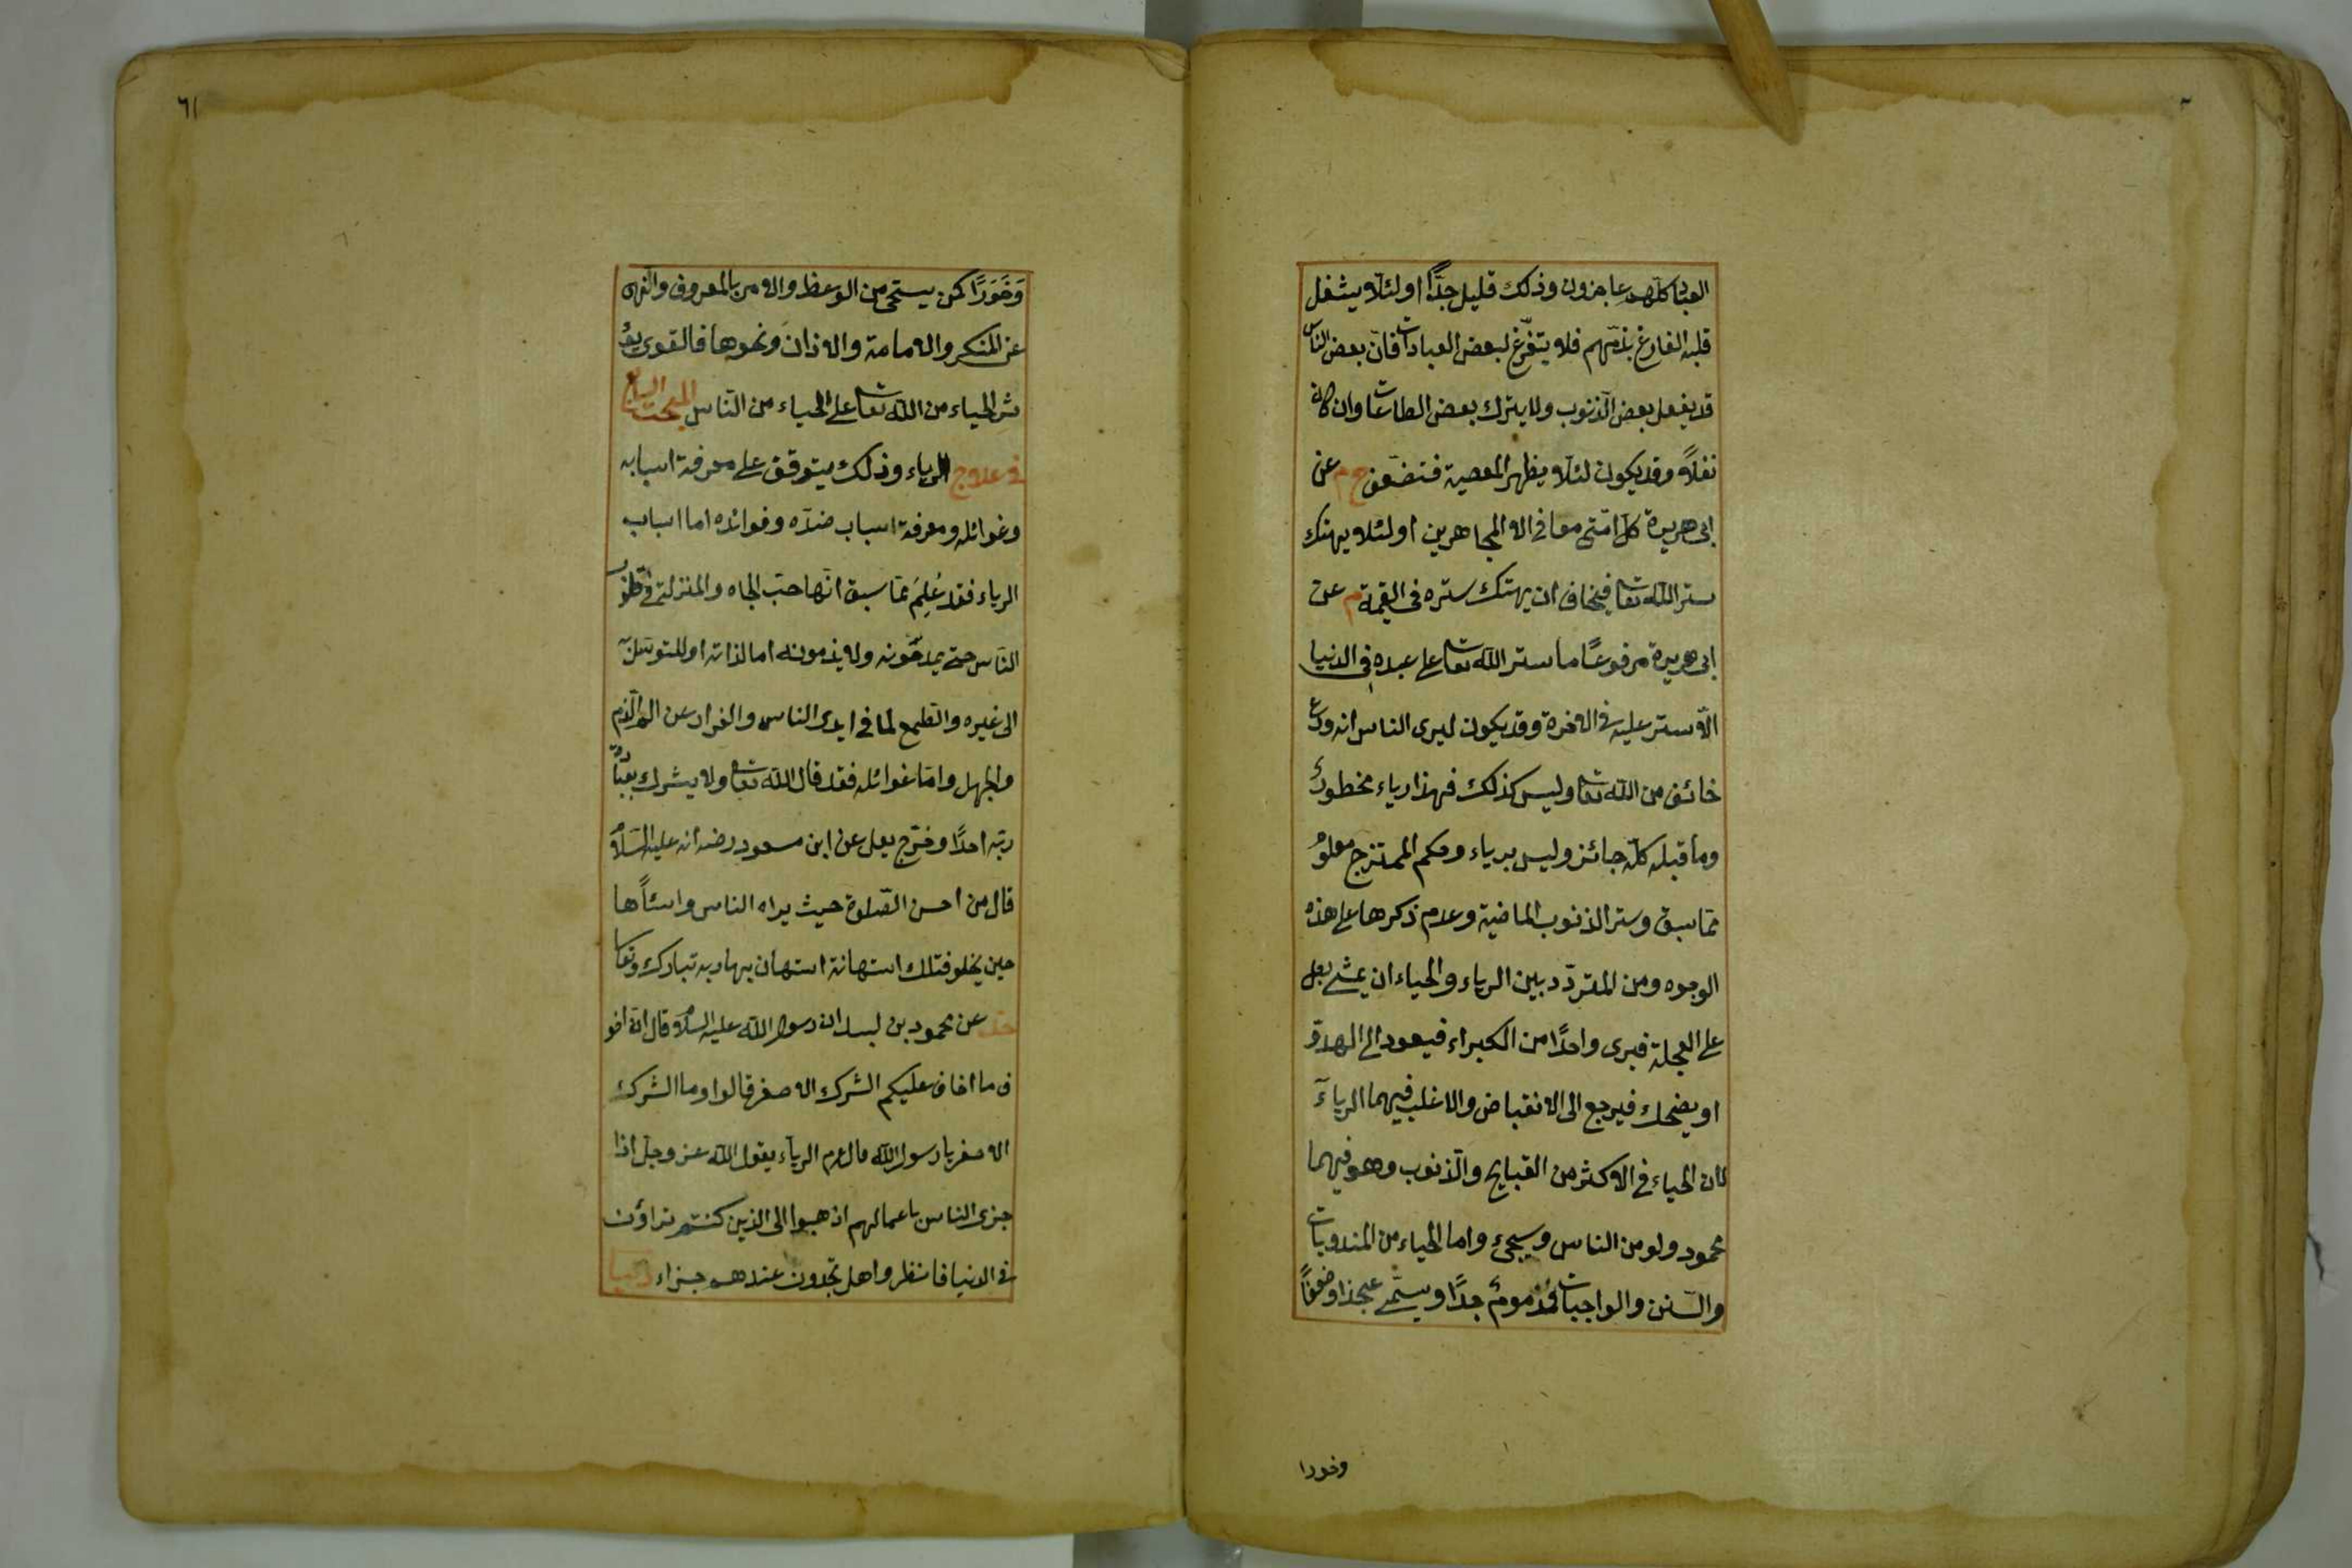 العباد كلهم عاجزون وذلك قليل جدًّا اولئلا يشغل
قلبه الفارغ بذمّهم فلا يتفرّغ لبعض العبادات فانّ بعض الناس
قد يفعل بعض الذنوب ولا يترك بعض الطاعات وان كان
نفلاً وقد يكون لئلا يظهر المعصية فتضعف خ م عن
ابى هريرة كلّ امّتى معافى الا المجاهرين اولئلا يهتك
ستر الله تعا فيخاف ان يهتك ستره فى القيمة م عن
ابى هريرة مرفوعًا ما ستر الله تعا على عبده فى الدنيا
الّا ستر عليه فى الاخرة وقد يكون ليرى الناس انه ورع
خائف من الله تعا وليس كذلك فهذا رياء محظورٌ
وما قبله كلّه جائز وليس برياء وحكم الممتزج معلومٌ
ممّا سبق وستر الذنوب الماضية وعدم ذكرها على هذه
الوجوه ومن المتردّد بين الرياء والحياء ان يمشى رجل
على العجلة فيرى واحدًا من الكبراء فيعود الى الهدؤ
او يضحك فيرجع الى الانقباض والاغلب فيهما الرياء
لان الحياء فى الاكثر من القبايح والذنوب وهو فيهما
محمود ولو من الناس وسيجئ واما الحياء من المندوبات
والسّنن والواجبات فمذمومٌ جدًّا ويسمّى عجزا وضعفًا
وخورا
٦١
وَخَوَرًا كمن يستحى من الوعظ والامر بالمعروف والنهى
عن المنكر والامامة والاذان ونحوها فالقوى يؤ
ثر الحياء من الله تعا على الحياء من الناس المبحث الرابع
فى علاج الرياء وذلك يتوقف على معرفة اسبابه
وغوائله ومعرفة اسباب ضدّه وفوائده اما اسباب
الرياء فقد عُلِمَ ممّا سبق انّها حبّ الجاه والمنزلة فى قلوب
الناس حتى يمدحّونه ولا يذمونه اما لذاته او للتوسّل به
الى غيره والطمع لما فى ايدى الناس والفرار عن الم الذم
والجهل وامّا غوائله فقد قال الله تعا ولا يشرك بعبادة
ربّه احدًا وخرّج يعلى عن ابن مسعود رضه انه عليه السّلام
قال من احسن الصّلوة حيث يراه الناس واسئاها
حين يخلو فتلك استهانة استهان بها ربه تبارك وتعا
حد عن محمود بن لبيد ان رسول الله عليه السلام قال انّ اخو
ف ما اخاف عليكم الشرك الاصغر قالوا وما الشرك
الاصغر يا رسول الله قال عم الرياء يقول الله عز وجلّ اذا
جزى الناس باعمالهم اذهبوا الى الذين كنتم تراؤن
فى الدنيا فانظروا هل تجدون عندهم جزاء دنيا